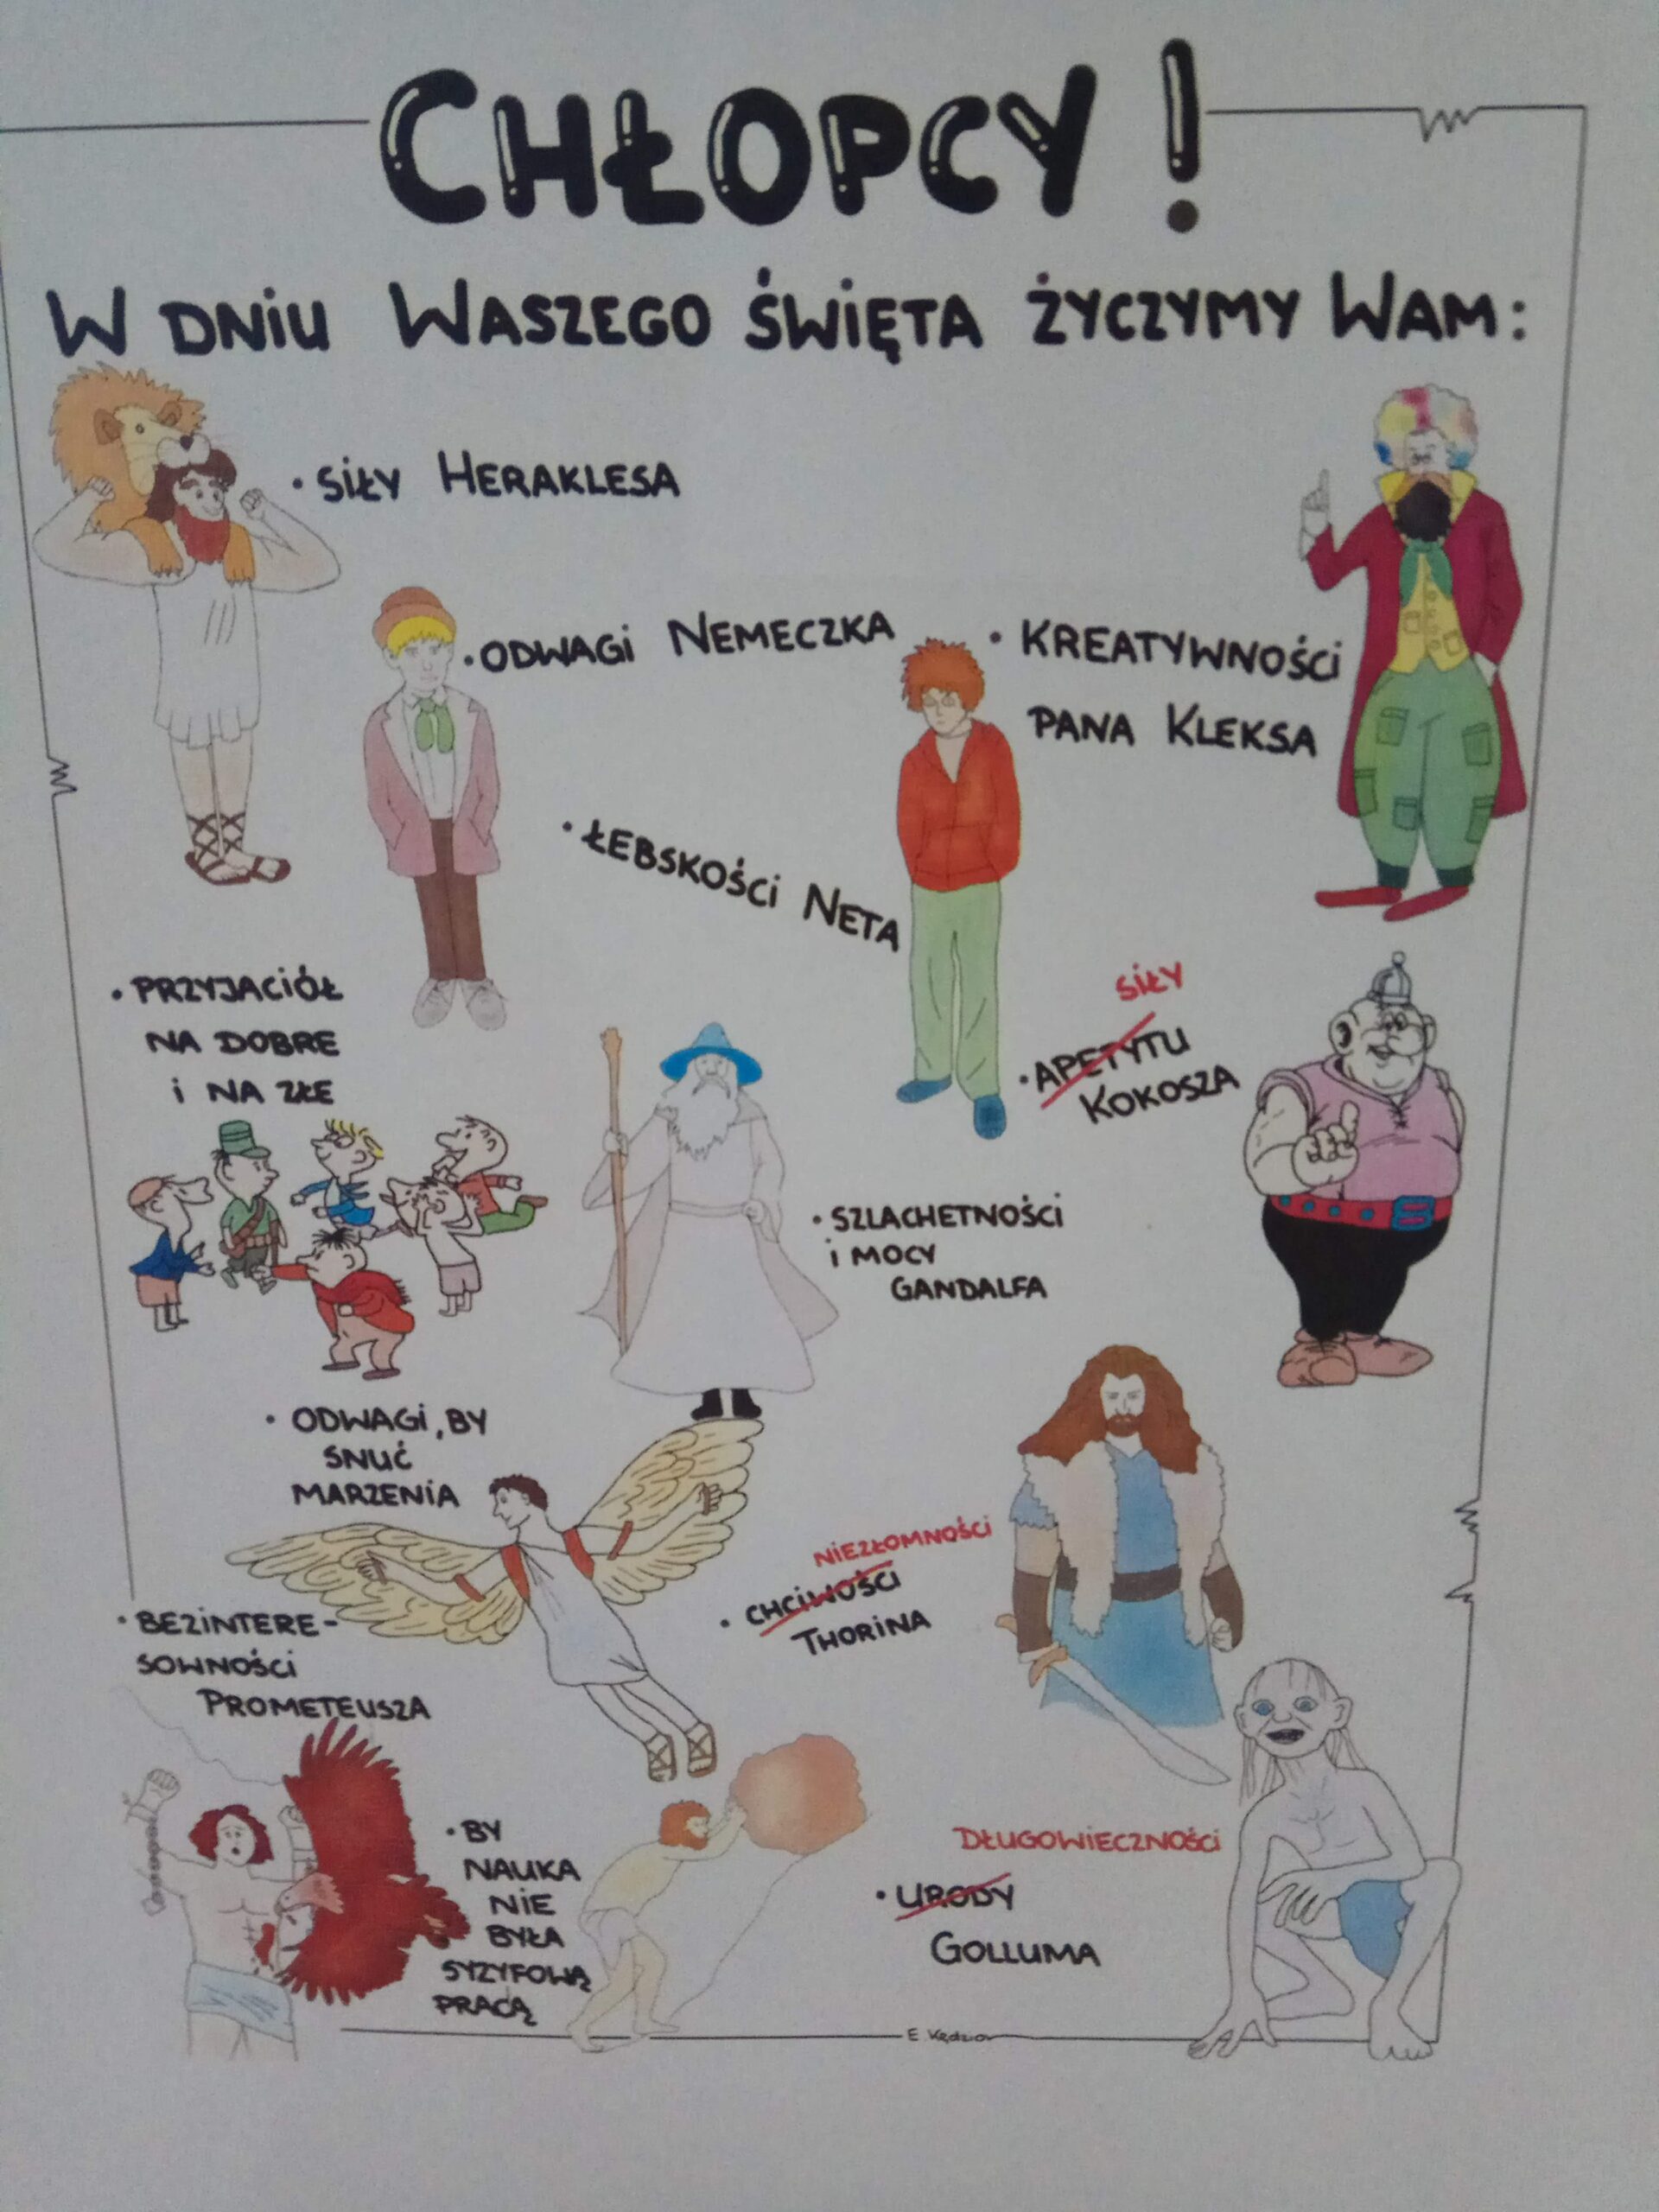 CHŁOPCY!
W DNiU WASZEGO ŚWiĘTA ŻYCZYMY WAM:
• SiŁY HERAKLESA
• ODWAGi NEMECZKA
• KREATYWNOŚCi
PANA KLEKSA
• ŁEBSKOŚCi NETA
• PRZYJACiÓŁ
NA DOBRE
i NA ZŁE
SiŁY
• APETYTU
KOKOSZA
• SZLACHETNOŚCi
i MOCY
GANDALFA
• ODWAGi, BY
SNUĆ
MARZENiA
NiEZŁOMNOŚCi
• CHCiWOŚCi
THORiNA
• BEZiNTERE-
SOWNOŚCi
PROMETEUSZA
• BY
NAUKA
NiE
BYŁA
SYZYFOWĄ
PRACĄ
DŁUGOWiECZNOŚCi
• URODY
GOLLUMA
E. Kędzior